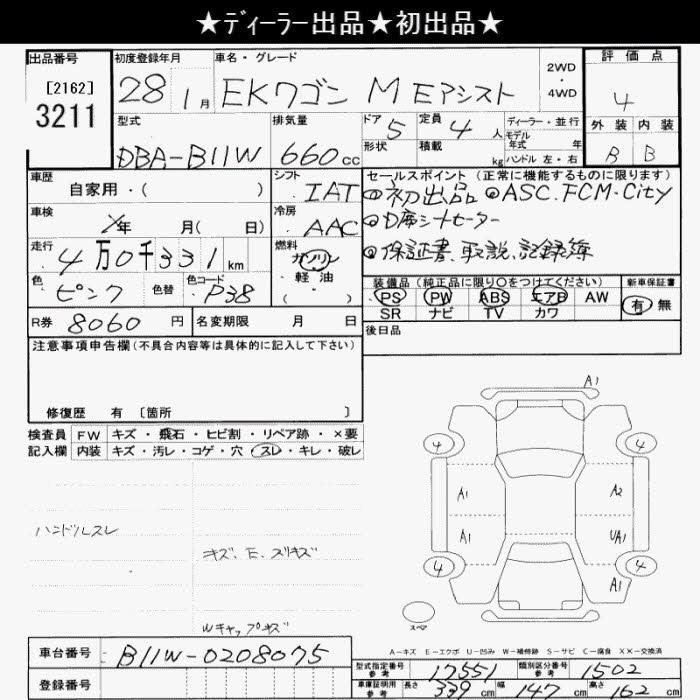 ★ディーラー出品★初出品★
出品番号 初度登録年月 車名・グレード 評価点
[2162]
3211
28 1月 EKワゴン M Eアシスト 2WD・4WD 4
型式 排気量 ドア 5 定員 4人 ディーラー・並行 外装 内装
モデル年式 年
DBA-B11W 660cc 形状 積載 kg ハンドル 左・右 B B
車歴 シフト セールスポイント (正常に機能するものに限ります)
自家用・( ) IAT 初出品 ASC.FCM.City
車検 年 月( 日) 冷房 AAC D席シートヒーター
走行 4万0千331km 燃料 ガソリン 保証書.取説.記録簿
軽・油
( )
色 ピンク 色替 色コード P38
装備品 (純正品に限り○をつけてください) 新車保証書
PS PW ABS エアB AW 有 無
SR ナビ TV カワ
R券 8060円 名変期限 月 日 後日品
注意事項申告欄 (不具合内容等は具体的に記入して下さい)
修復歴 有 [箇所 ]
検査員 FW キズ・飛石・ヒビ割・リペア跡・×要
記入欄 内装 キズ・汚レ・コゲ・穴・スレ・キレ・破レ
ハンドルスレ
キズ.E.スリキズ
Wキャップキズ
A1
4 4
A1 A2
A1 UA1
4 4
A1
スペア
A-キズ E-エクボ U-凹み W-補修跡 S-サビ C-腐食 XX-交換済
車台番号 B11W-0208075
登録番号
型式指定番号 参考 17551 類別区分番号 参考 1502
車庫証明用 参考 長さ 339cm 幅 147cm 高さ 162cm